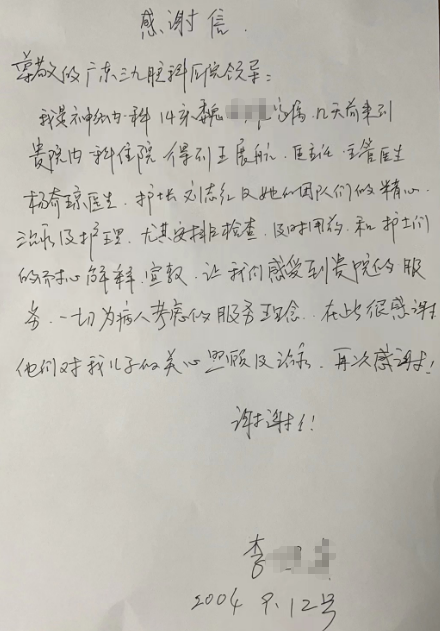 感谢信.
尊敬的广东三九脑科医院领导:
我是神经内科14床魏 家属,几天前来到
贵院内科住院 得到王展航 医主任 主管医生
杨 琼医生. 护长 刘志红及她们团队们的精心
治疗及护理, 尤其安排的检查, 及时用药, 和护士们
的耐心解释. 宣教, 让我们感受到贵院的服
务, 一切为病人考虑的服务理念. 在此很感谢
他们对我儿子的关心照顾及治疗. 再次感谢!
谢谢!!
李
2004 9.12号